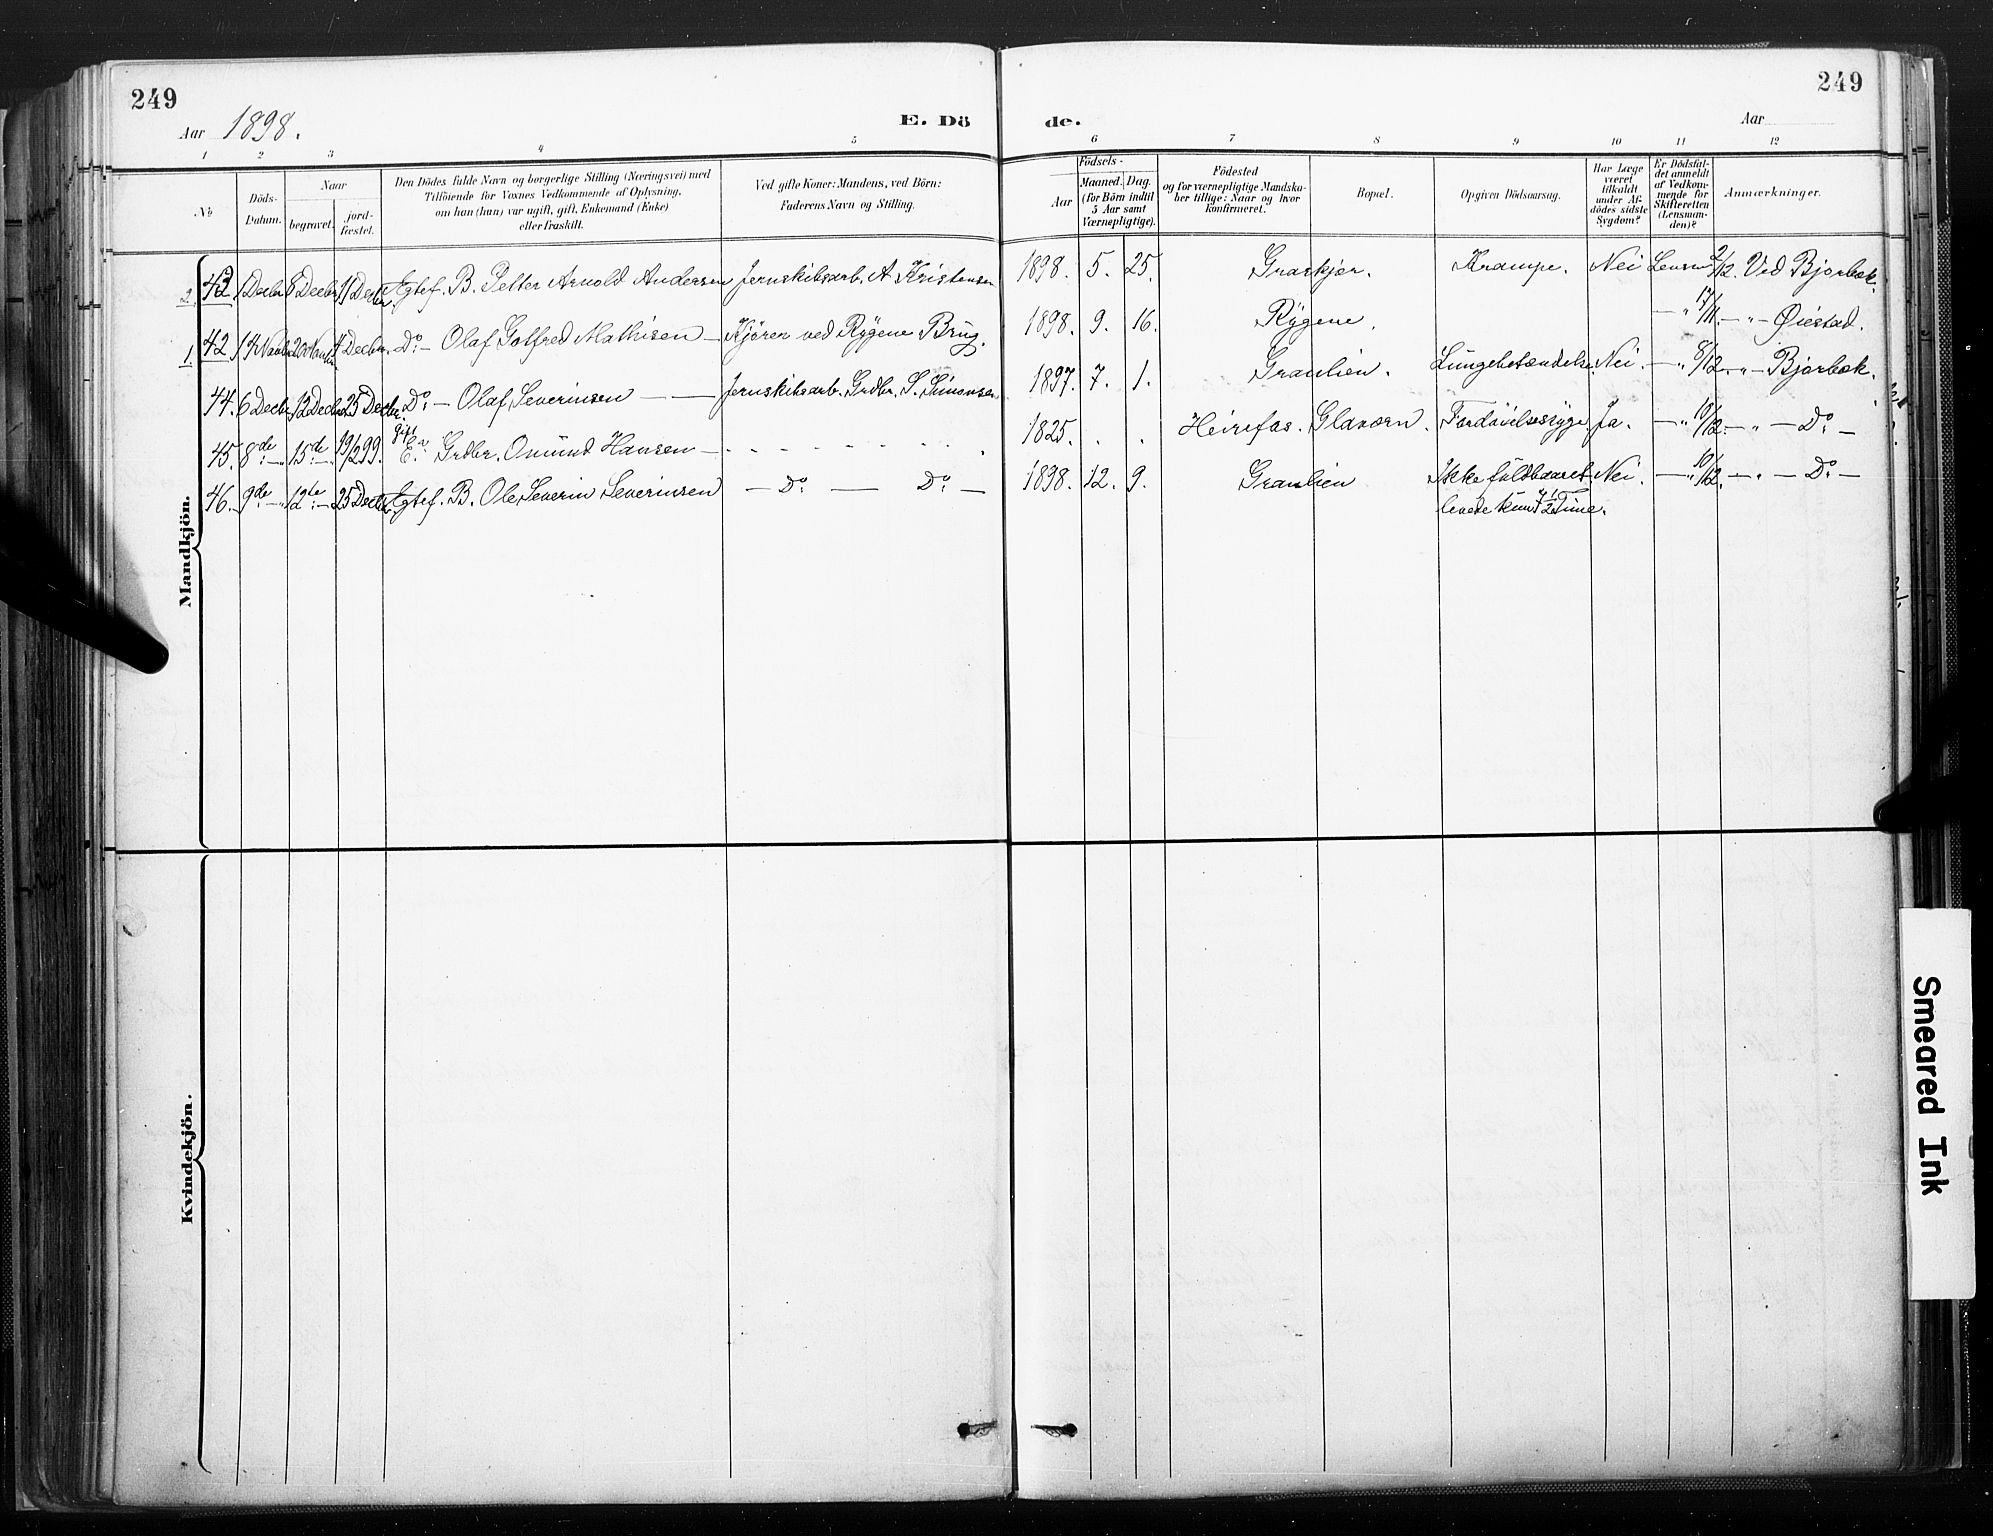 249
249
Aar 1898.
E. Dö
de.
Aar
1 2 3 4 5 6 7 8 9 10 11 12
No
Döds-
Datum.
Naar
begravet.
jord-
fæstet.
Den Dödes fulde Navn og borgerlige Stilling (Næringsvei) med
Tilföiende for Voxnes Vedkommende af Oplysning,
om han (hun) var ugift, gift, Enkemand (Enke)
eller fraskilt.
Ved gifte Koner: Mandens, ved Börn:
Faderens Navn og Stilling.
Aar
Födsels-
Maaned. Dag.
(for Börn indtil
5 Aar samt
Værnepligtige).
Födested
og for værnepligtige Mandska-
ber tillige: Naar og hvor
konfirmeret.
Bopæl.
Opgiven Dödsaarsag.
Har Læge
været
tilkaldt
under Af-
dödes sidste
Sygdom?
Er Dödsfal-
det anmeldt
af Vedkom-
mende for
Skifteretten
(Lensman-
den)?
Anmærkninger.
Mandkjön.
2. 43 1 Decbr 8 Decbr 11 Decbr. Egtef. B. Petter Arnold Andersen Jernskibsarb. A. Kristensen 1898. 5. 25. Graskjær. Krampe. Nei Lensm 2/12. Ved Bjorbæk.
1. 42 14 Novbr 20 Novbr 4 Decbr. Do. – Olaf Gotfred Mathisen – Kjören ved Rygene Brug. 1898. 9. 16. Rygene. – " 17/11. – " – Øiestad.
44. 6 Decbr 12 Decbr 25 Decbr. Do. – Olaf Severinsen – – Jernskibsarb. Grdbr. S. Simonsen 1897. 7. 1. Granlien. Lungebetændelse. Nei. – " 8/12. – " – Bjorbæk.
45. 8de – 15de – 19/2 99. gift E. Grdbr. Omund Hansen – 1825. Heirefos. Glavorn. Fordöielsessyge. Ja. – " 10/12. – " – Do. –
46. 9de – 12te – 25 Decbr. Egtef. B. Ole Severin Severinsen – Do. – Do. – 1898. 12. 9. Granlien Ikke fuldbaaret Nei. – " 10/12. – " – Do. –
levede kun 7 1/2 Time.
Kvindekjön.
Smeared Ink